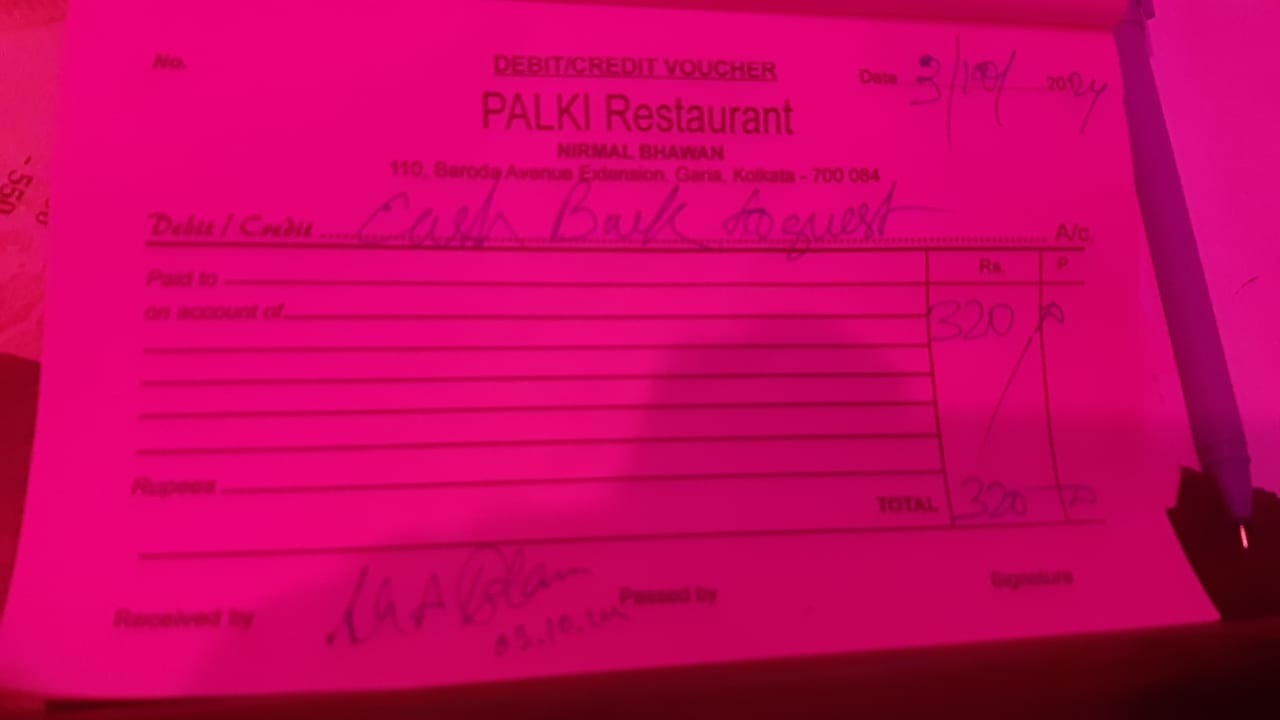 No.
DEBIT/CREDIT VOUCHER
Date 3/10/ 2024
PALKI Restaurant
NIRMAL BHAWAN
110, Baroda Avenue Extension, Garia, Kolkata - 700 084
Debit / Credit Cash Back to guest A/c.
Rs. P.
Paid to
on account of 320
Rupees
TOTAL 320
Received by Passed by Signature
03.10.24
550